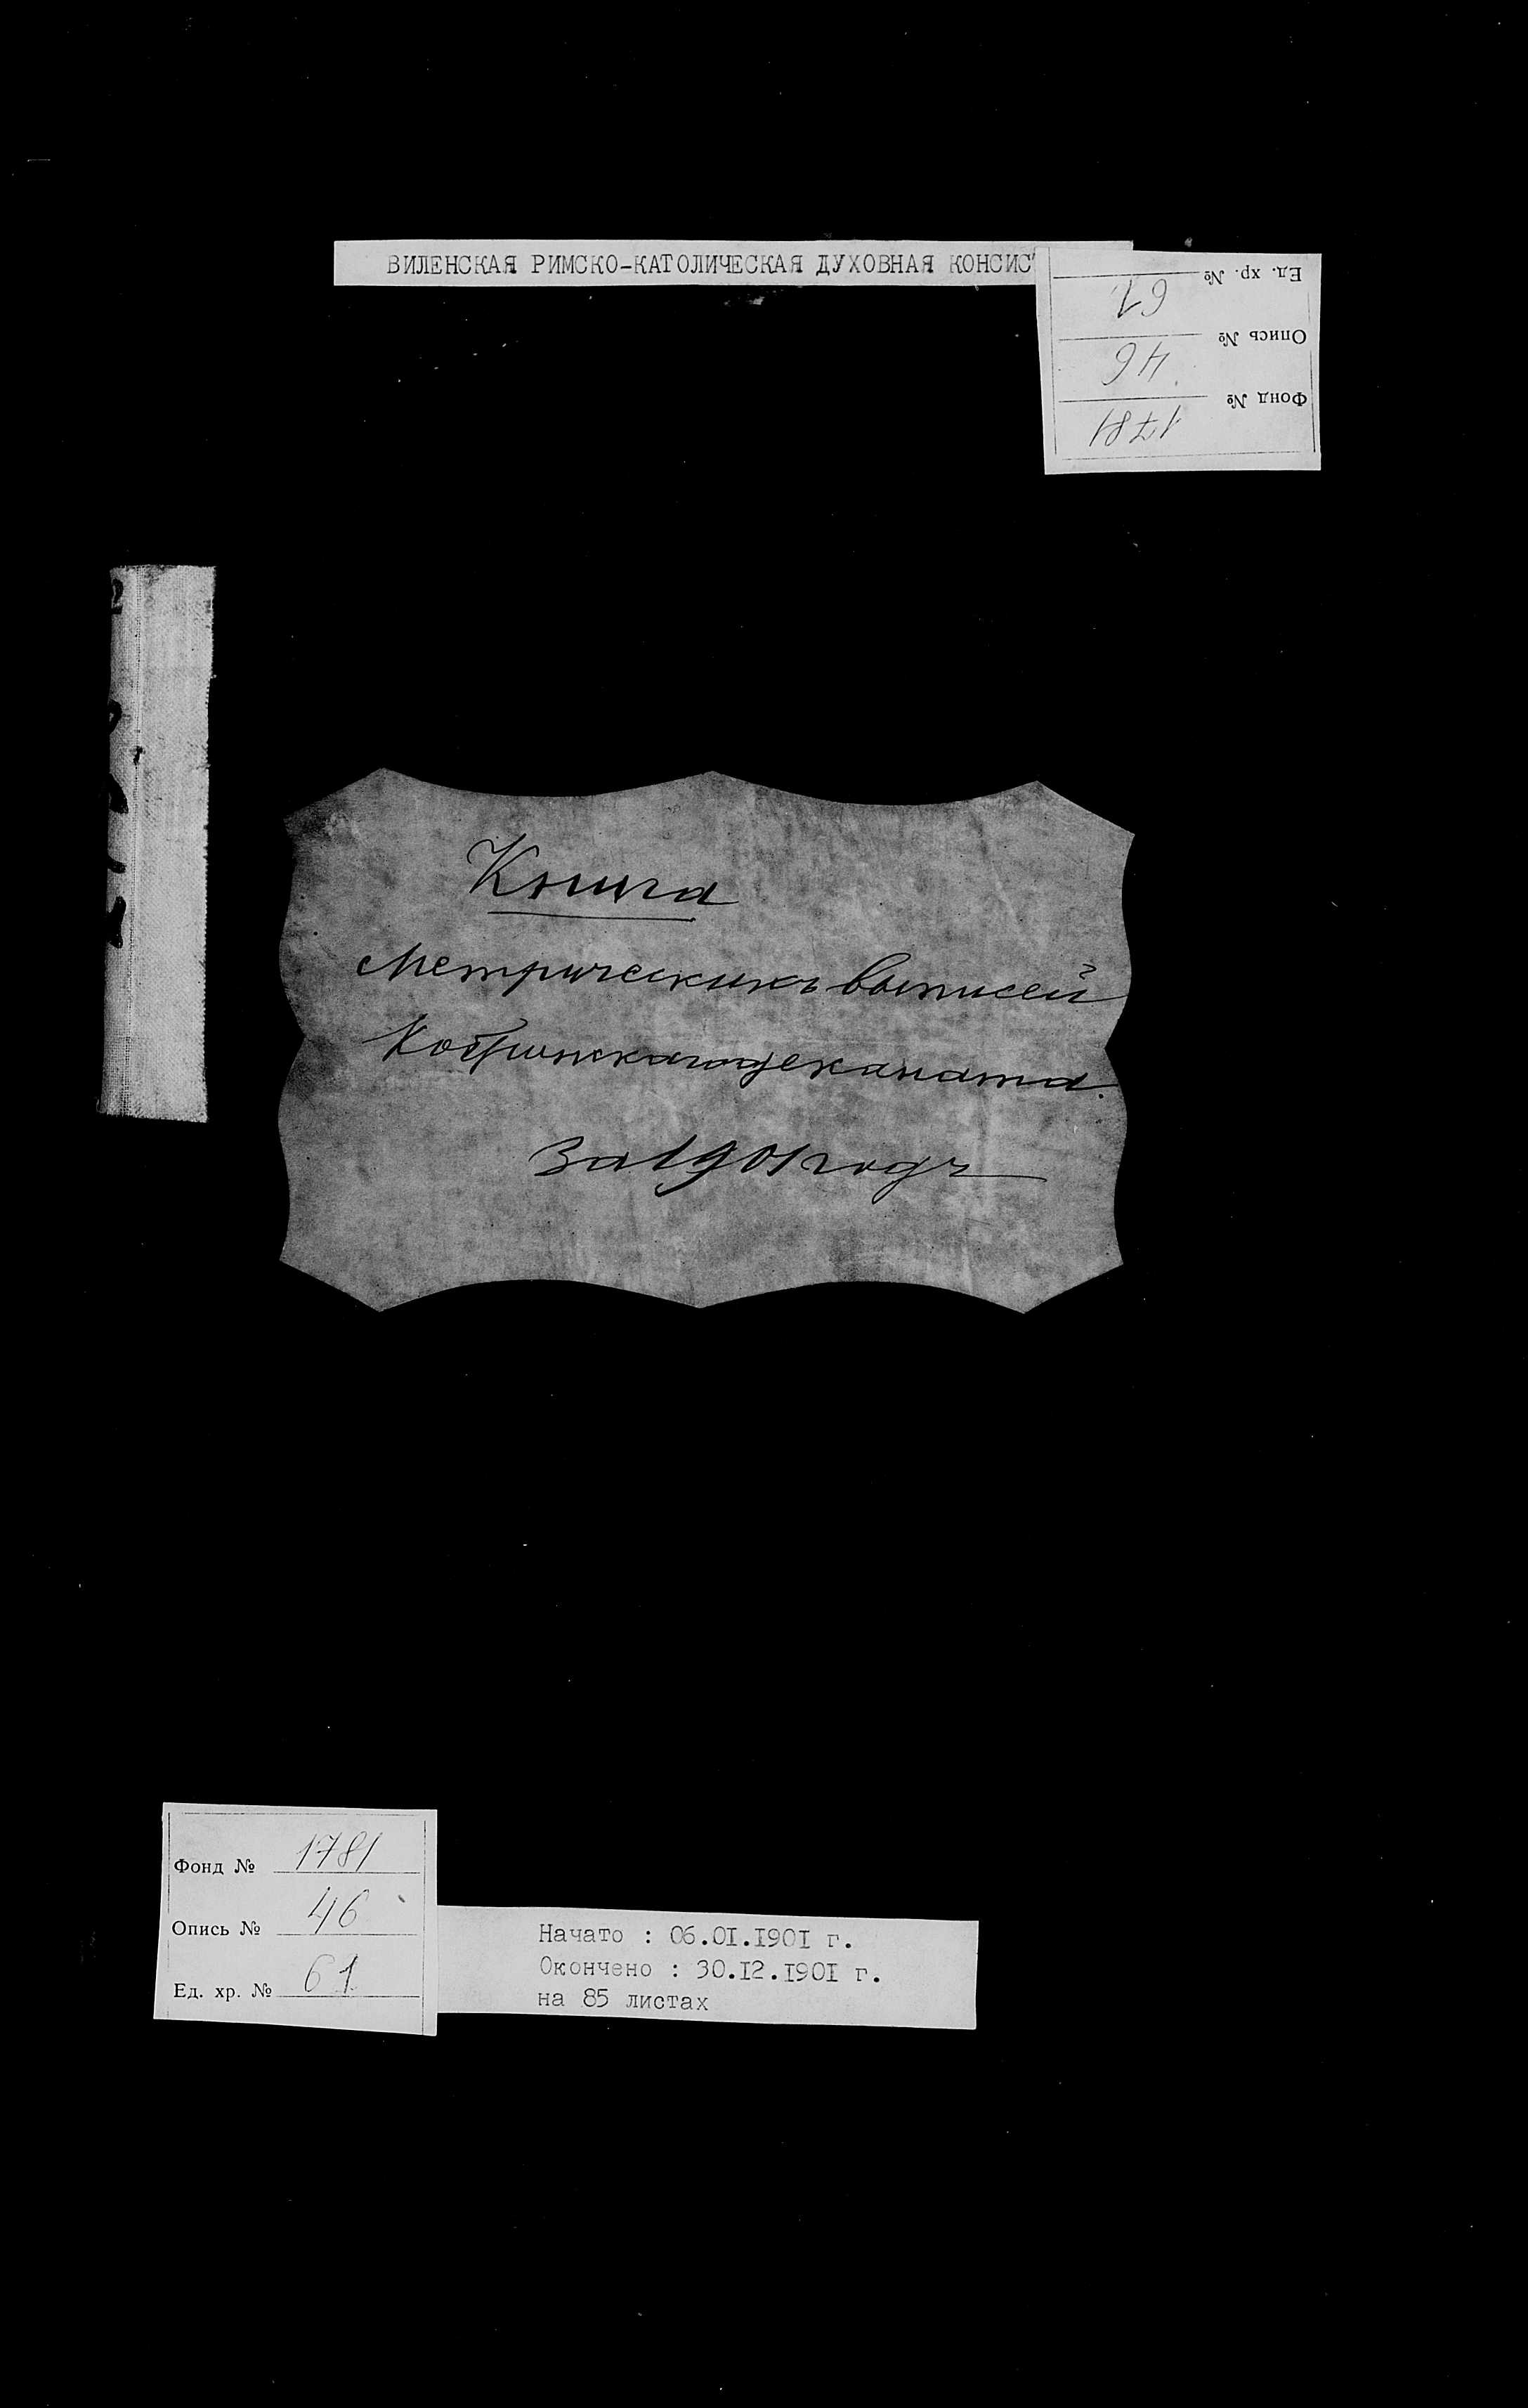 ВИЛЕНСКАЯ РИМСКО-КАТОЛИЧЕСКАЯ ДУХОВНАЯ КОНСИС
Фонд № 1781
Опись № 46
Ед. хр. № 61
Книга
Метрическихъ выписей
Кобринскаго деканата.
За 1901 годъ
Фонд № 1781
Опись № 46
Ед. хр. № 61
Начато : 06.01.1901 г.
Окончено : 30.12.1901 г.
на 85 листах